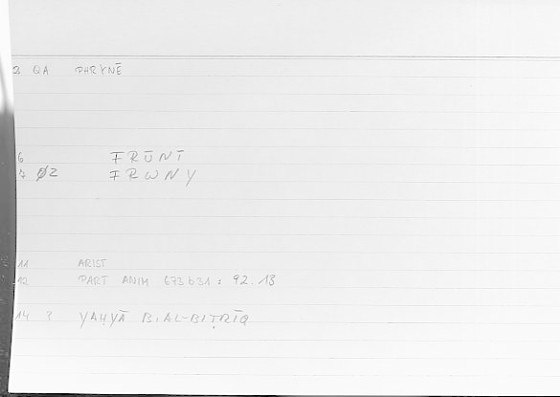 3 QA PHRYNĒ
6 FRŪNĪ
7 ØZ FRWNY
11 ARIST
12 PART ANIM 673b31 : 92.18
14 2 YAḤYĀ B.AL-BIṬRĪQ